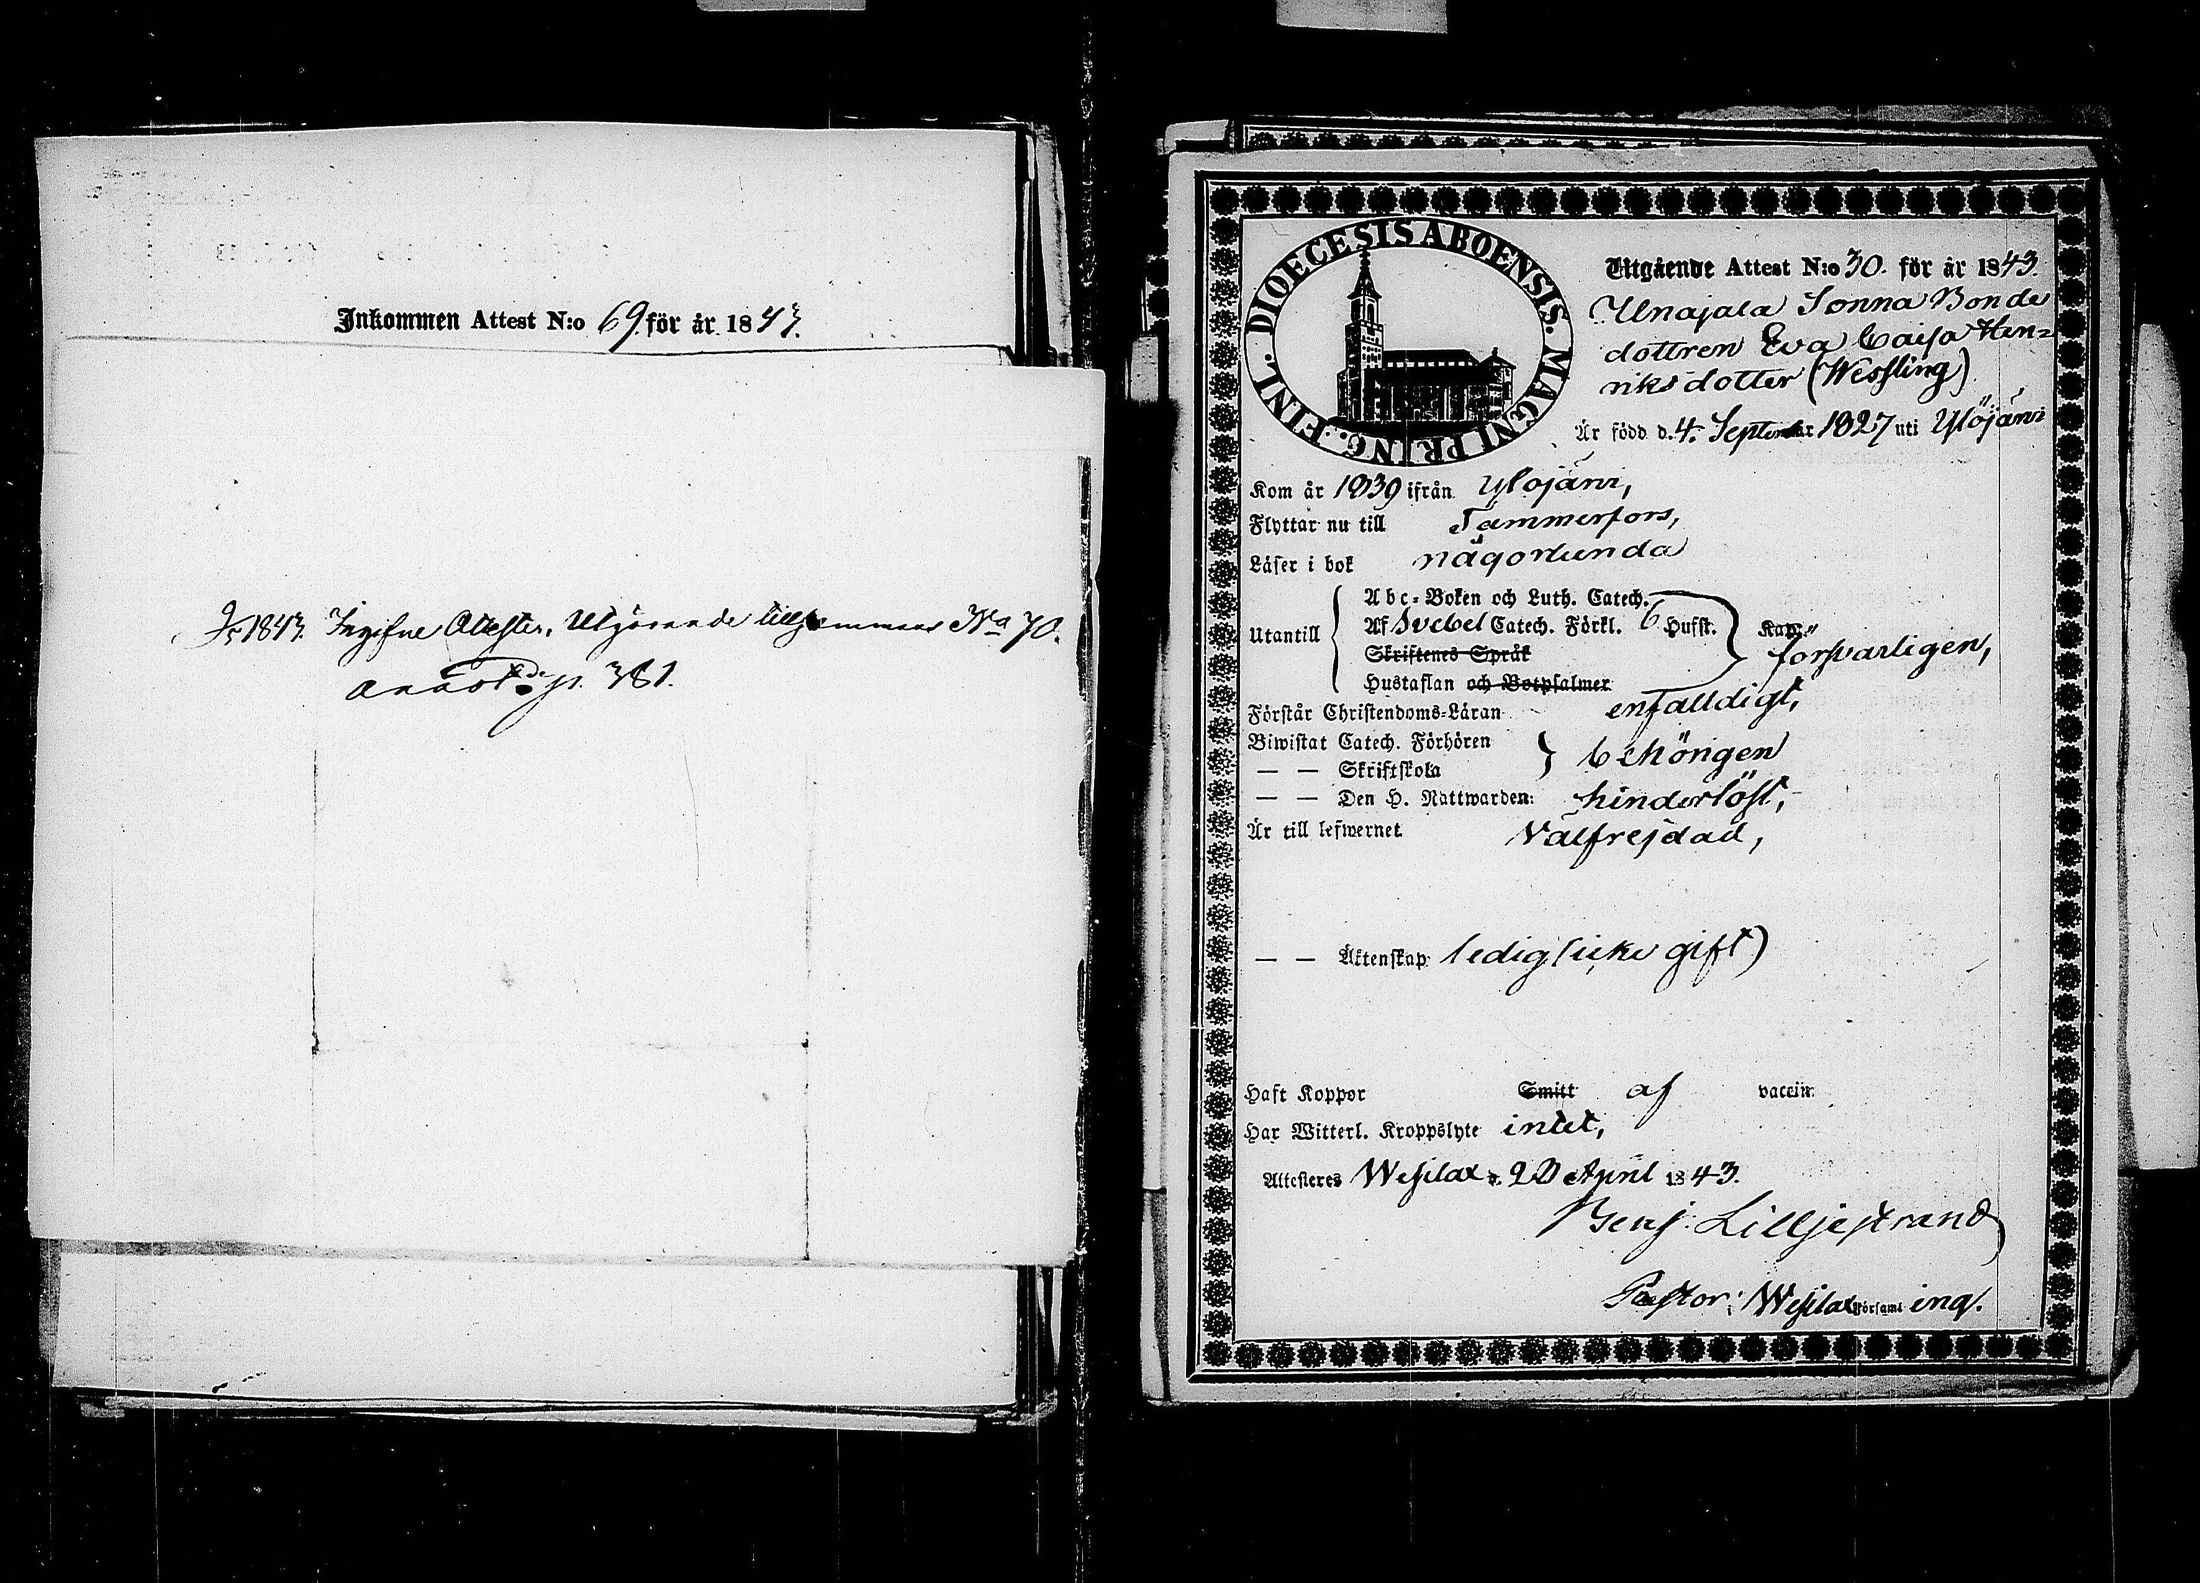 Inkommen Attest N:o 69. för år 1843.
1843. Ingifne Attester, Utgörande tillsammans 70.
p. 381.
DIOECESIS ABOENSIS. MAGNI PRINC. FINL.
Utgående Attest N:o 30. för år 1843.
Unajala Sonna Bonde
dottren Eva Caisa Hen=
riksdotter (Wessling)
Är född d. 4. September 1827 uti Ylöjärvi
Kom år 1839 ifrån Ylöjärvi,
Flyttar nu till Tammerfors,
Läser i bok någorlunda
Utantill
Abc-Boken och Luth. Catech.
Af Svebel Catech. Förkl. 6 Hufst. Kap.
försvarligen,
Skriftenes Språk
Hustaflan och Botpsalmer
Förstår Christendoms-Läran enfalldigt,
Biwistat Catech. Förhören
— — Skriftskola
behörigen
— — Den H. Nattwarden: hinderlöst,
Är till lefwernet Välfrejdad,
— — Äktenskap ledig (icke gift)
Haft Koppor Smitt af vaccin
Har Witterl. Kroppslyte intet,
Attesteres Wesilax d. 20 April 1843.
Benj. Lilljestrand
Pastor: Wesilax Församl ing.